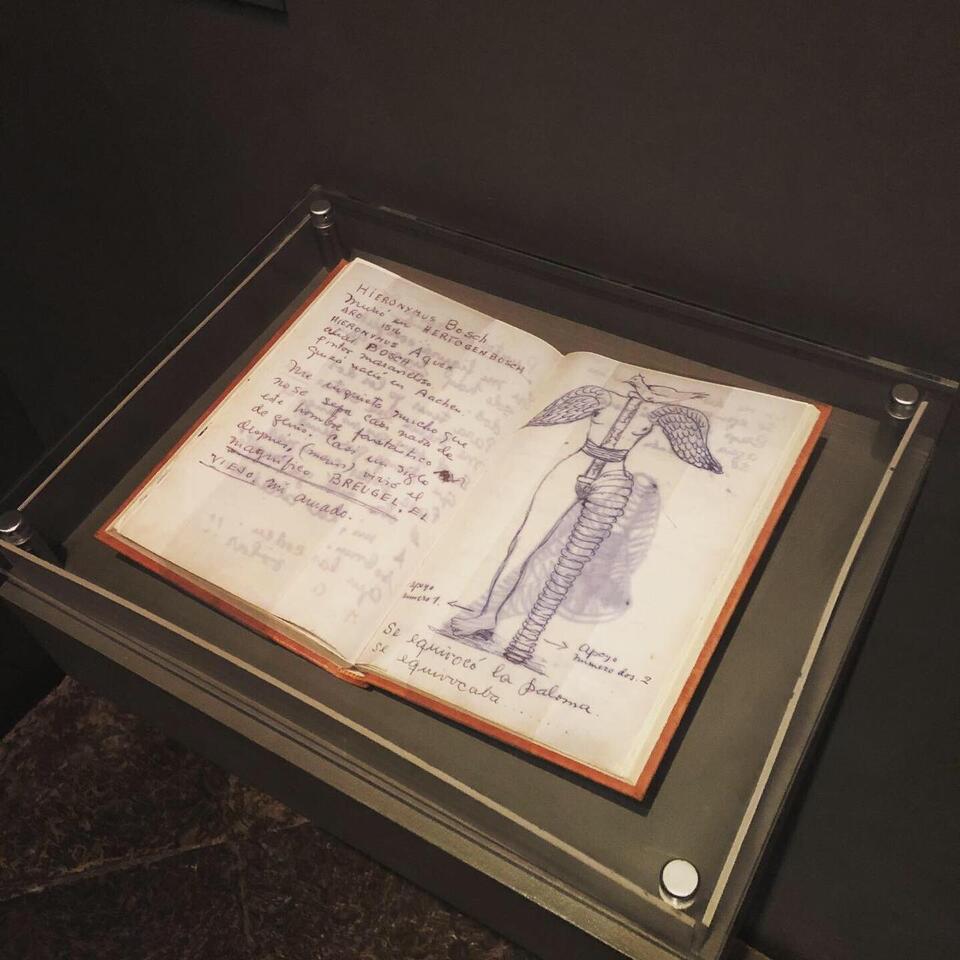 HIERONYMUS Bosch
Murió en HERTOGENBOSCH
AÑO 1516
HIERONYMUS AQUEN
aluá BOSCH
pintor maravilloso
quizá nació en Aachen.
Me inquieta mucho que
no se sepa casi nada de
este hombre fantástico
de genio. Casi un siglo
después, (menos) vivió el
magnífico BREUGEL, EL
VIEJO, mi amado.
apoyo
numero 1.
apoyo
numero dos. 2
Se equivocó la paloma.
se equivocaba...